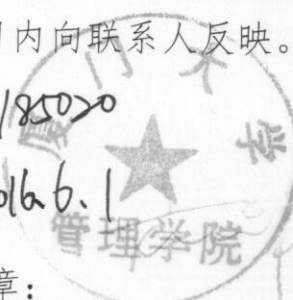 内向联系人反映。
185020
016.6.1
厦门大学
管理学院
章：